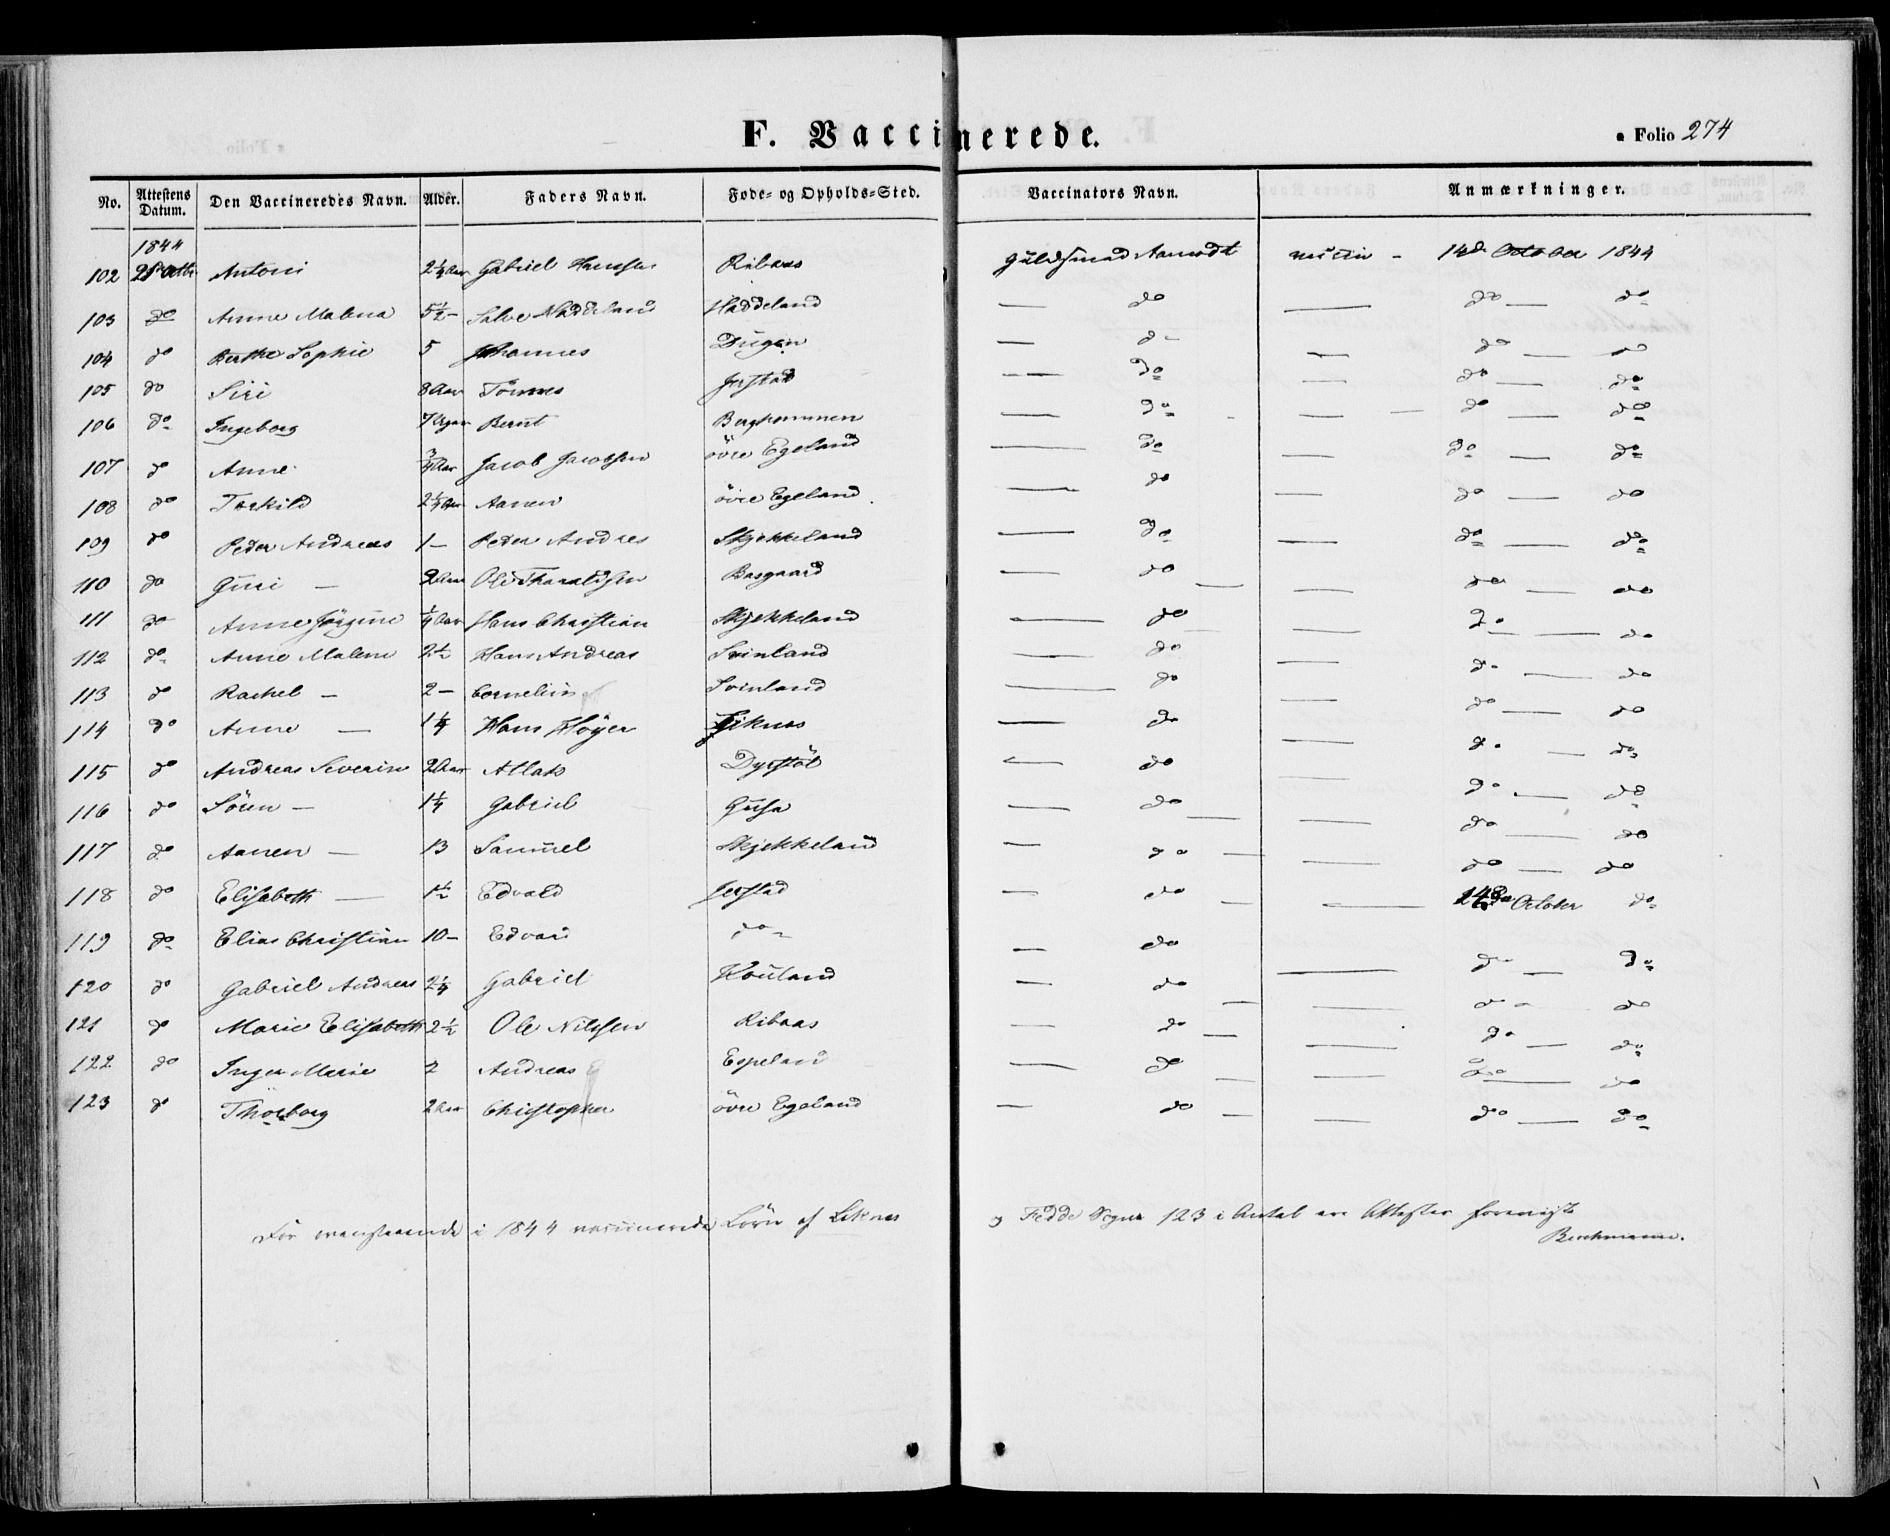 F. Vaccinerede.
Folio 274
No. Attestens Datum. Den Vaccineredes Navn. Alder. Faders Navn. Føde- og Opholds-Sted. Vaccinators Navn. Anmærkninger.
1844
102 28 Octbr Antoni 2¼ Aar Gabriel Hanssen Ribaas Guldsmed Aamodt vaccin - 14de October 1844
103 do Anne Malena 5½ - Salve Haddeland Haddeland — do — do — do
104 do Berthe Sophie 5 Johannes Dugan — do — do — do
105 do Siri 8 Aar Tönnes Jerstad — do — do — do
106 do Ingeborg 7 Bernt Bergkommen — do — do — do
107 do Anne ¾ Aar Jacob Jacobsen övre Egeland — do — do — do
108 do Torkild 2¼ Aar Aanen övre Egeland — do — do — do
109 do Peder Andreas 1 - Peder Andres Skjekkeland — do — do — do
110 do Guri — 2 Aar Ole Tharaldsen Basgaard — do — do — do
111 do Anne Jörgine ¼ Aar Hans Christian Skjekkeland — do — do — do
112 do Anne Malene 2½ Hans Andreas Svinland — do — do — do
113 do Rachel — 2 - Cornelius Svinland — do — do — do
114 do Anne — 1¼ Hans Höyer Liknes — do — do — do
115 do Andreas Severin 2 Aar Atlak Dyrstöl — do — do — do
116 do Sören — 1¼ Gabriel Gusa — do — do — do
117 do Aanen — 13 Samuel Skjekkeland — do — do — do
118 do Elisabeth — 1½ Edvald Jerstad — do — 14de October do
119 do Elias Christian 10 - Edvard do — do — do — do
120 do Gabriel Andreas 2¼ Gabriel Houland — do — do — do
121 do Marie Elisabeth 2½ Ole Nilssen Ribaas — do — do — do
122 do Inger Marie 2 Andreas Espeland — do — do — do
123 do Thorborg 2 Aar Christopher övre Egeland — do — do — do
For ovenstaaende i 1844 vaccinerede Börn af Liknes og Fedde Sogne 123 i Antal ere Attester foreviiste